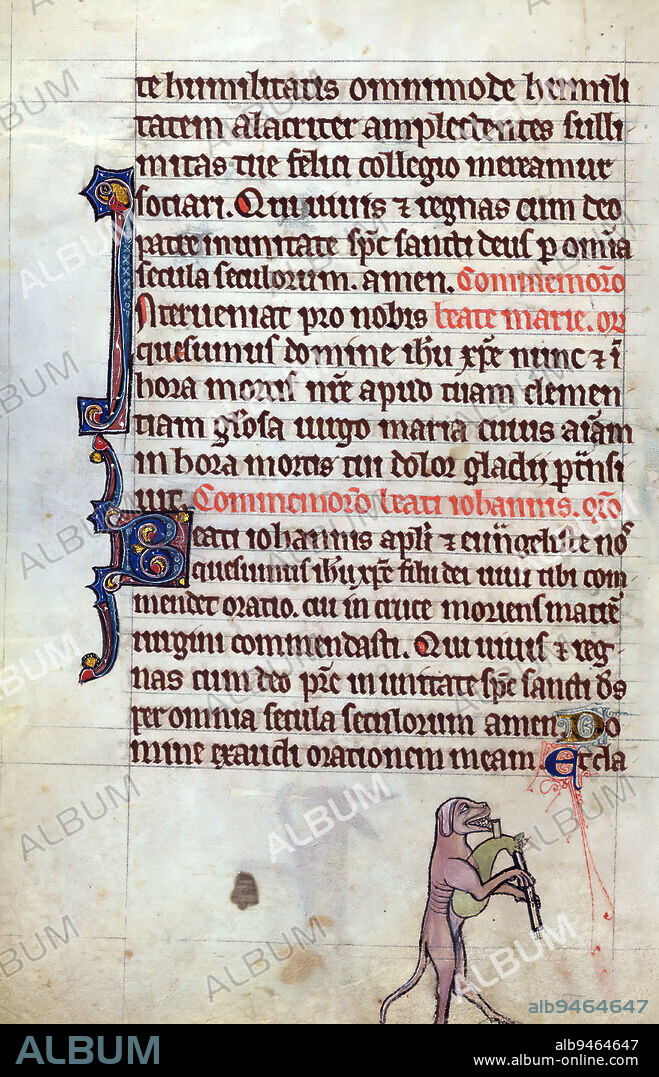 te humilitatis omnimode humili
tatem alacriter amplectentes subli
mitas tue felici collegio mereamur
sociari. Qui uiuis ⁊ regnas cum deo
patre in unitate sp̄c sancti deus p om̄ia
secula seculorum. amen. Commemor̄o
Interueniat pro nobis beate marie. or
quesumus domine ih̄u xp̄e nunc ⁊ ī
hora mortis nr̄e apud tuam clemen
tiam gl̄osa uirgo maria cuius aīam
in hora mortis tui dolor gladij p̄tnsi
uit. Commemor̄o beati iohannis. or̄o
Beati iohannis apl̄i ⁊ euu̅geliste no
quesumus ih̄u xp̄e filii dei uiui tibi com
mendet oratio. cui in cruce moriens matrē
uirgini commendasti. Qui uiuis ⁊ reg
nas cum deo pr̄e in unitate sp̄c sancti d̄s
per omnia secula seculorum amen. Do
mine exaudi orationem meam. Et cla
ALBUM
alb9464647
ALBUM
alb9464647
www.album-online.com